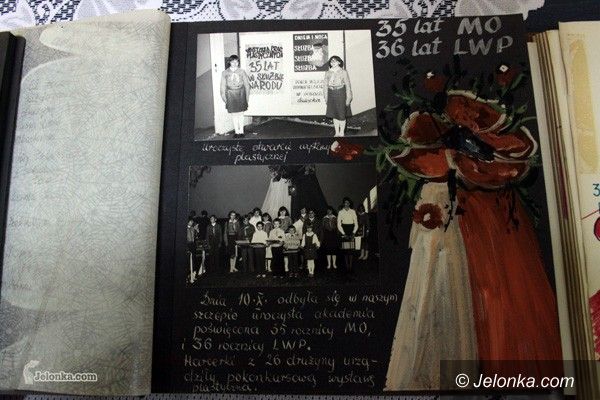 35 lat MO
36 lat LWP
35 LAT
W SŁUŻBIE
NARODU
SŁUŻBA
SŁUŻBA
Uroczyste otwarcie wystawy
plastycznej
Dnia 10.X. odbyła się w naszym
szczepie uroczysta akademia
poświęcona 35 rocznicy MO,
i 36 rocznicy LWP.
Harcerki z 26 drużyny urzą-
dziły pokonkursową wystawę
plastyczną.
Jelonka.com
© Jelonka.com